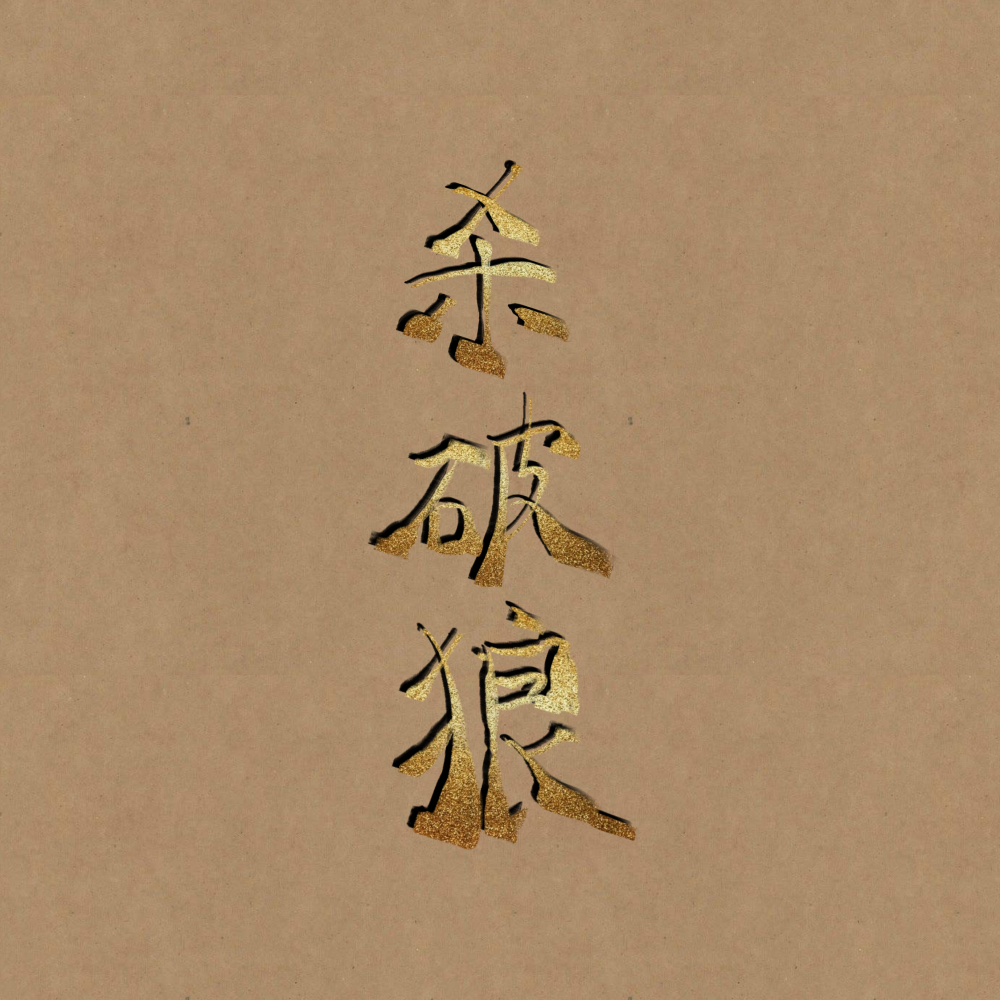 杀破狼